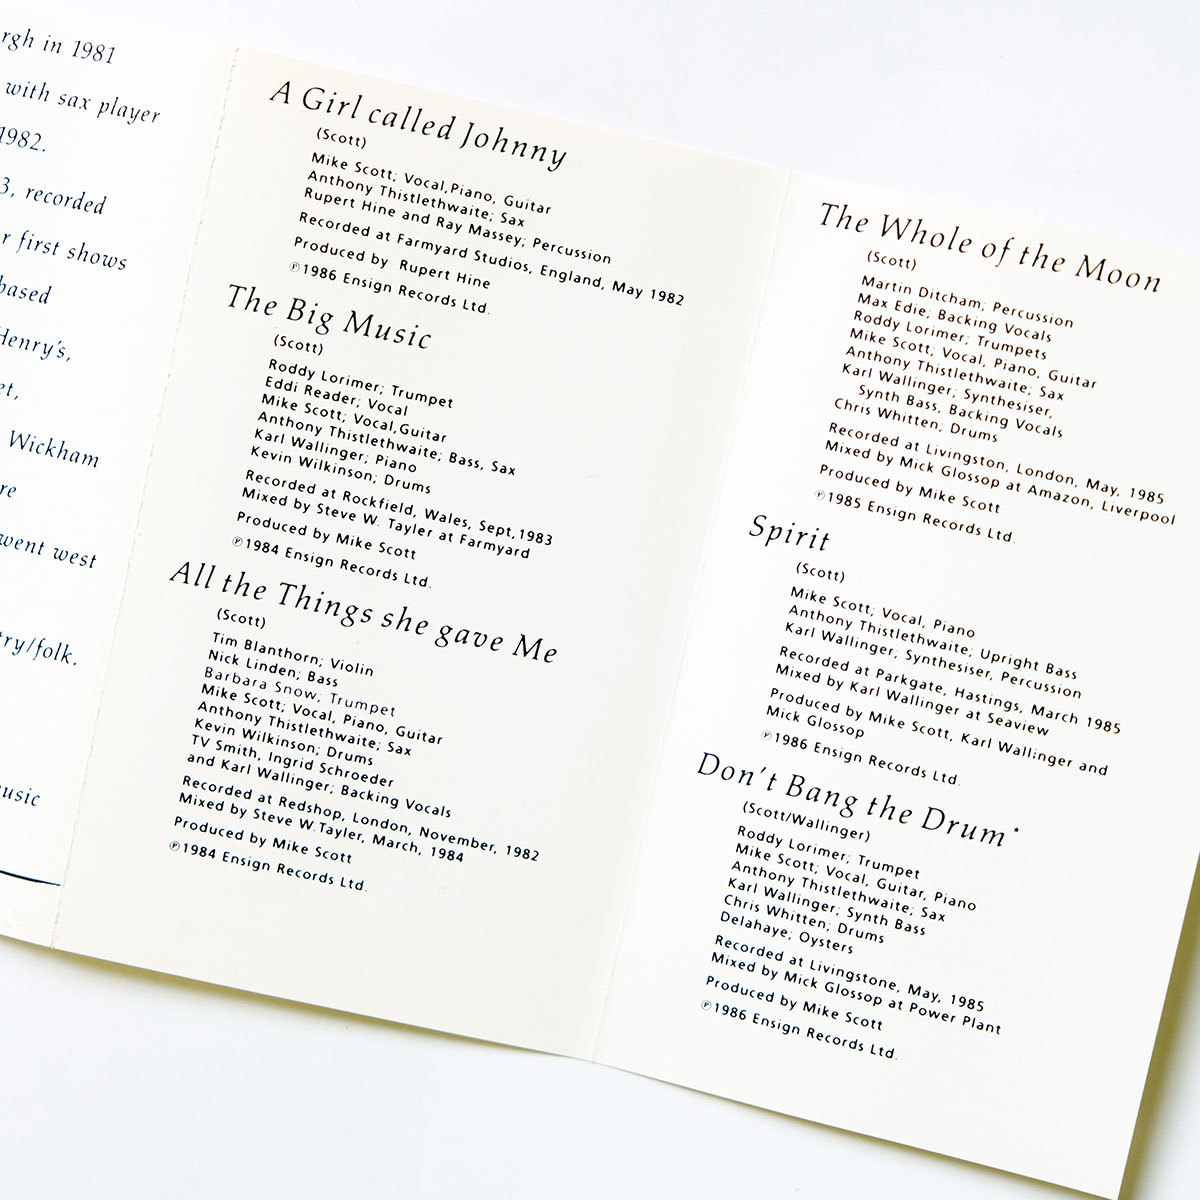 rgh in 1981
with sax player
1982.
3, recorded
r first shows
based
Henry's,
et,
Wickham
re
went west
try/folk.
usic
A Girl called Johnny
(Scott)
Mike Scott; Vocal,Piano, Guitar
Anthony Thistlethwaite; Sax
Rupert Hine and Ray Massey; Percussion
Recorded at Farmyard Studios, England, May 1982
Produced by Rupert Hine
℗1986 Ensign Records Ltd.
The Big Music
(Scott)
Roddy Lorimer; Trumpet
Eddi Reader; Vocal
Mike Scott; Vocal,Guitar
Anthony Thistlethwaite; Bass, Sax
Karl Wallinger; Piano
Kevin Wilkinson; Drums
Recorded at Rockfield, Wales, Sept,1983
Mixed by Steve W. Tayler at Farmyard
Produced by Mike Scott
℗1984 Ensign Records Ltd.
All the Things she gave Me
(Scott)
Tim Blanthorn; Violin
Nick Linden; Bass
Barbara Snow; Trumpet
Mike Scott; Vocal, Piano, Guitar
Anthony Thistlethwaite; Sax
Kevin Wilkinson; Drums
TV Smith, Ingrid Schroeder
and Karl Wallinger; Backing Vocals
Recorded at Redshop, London, November, 1982
Mixed by Steve W.Tayler, March, 1984
Produced by Mike Scott
℗1984 Ensign Records Ltd.
The Whole of the Moon
(Scott)
Martin Ditcham; Percussion
Max Edie; Backing Vocals
Roddy Lorimer; Trumpets
Mike Scott; Vocal, Piano, Guitar
Anthony Thistlethwaite; Sax
Karl Wallinger; Synthesiser,
Synth Bass, Backing Vocals
Chris Whitten; Drums
Recorded at Livingston, London, May, 1985
Mixed by Mick Glossop at Amazon, Liverpool
Produced by Mike Scott
℗1985 Ensign Records Ltd.
Spirit
(Scott)
Mike Scott; Vocal, Piano
Anthony Thistlethwaite; Upright Bass
Karl Wallinger; Synthesiser, Percussion
Recorded at Parkgate, Hastings, March 1985
Mixed by Karl Wallinger at Seaview
Produced by Mike Scott, Karl Wallinger and
Mick Glossop
℗1986 Ensign Records Ltd.
Don't Bang the Drum*
(Scott/Wallinger)
Roddy Lorimer; Trumpet
Mike Scott; Vocal, Guitar, Piano
Anthony Thistlethwaite; Sax
Karl Wallinger; Synth Bass
Chris Whitten; Drums
Delahaye; Oysters
Recorded at Livingstone, May, 1985
Mixed by Mick Glossop at Power Plant
Produced by Mike Scott
℗1986 Ensign Records Ltd.